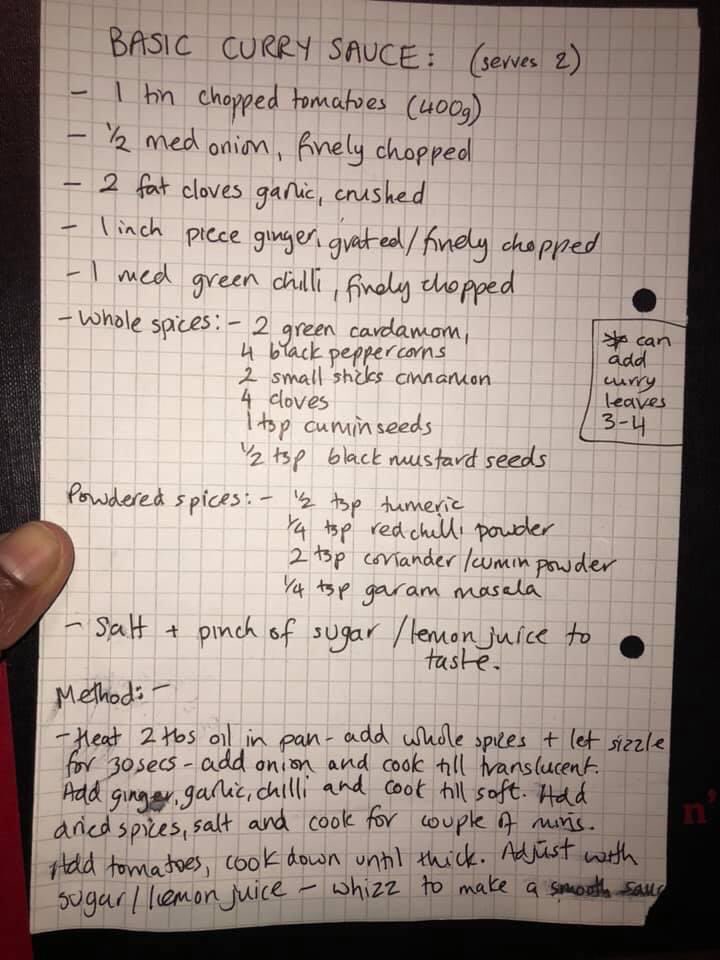 BASIC CURRY SAUCE: (serves 2)
- 1 tin chopped tomatoes (400g)
- ½ med onion, finely chopped
- 2 fat cloves garlic, crushed
- 1 inch piece ginger, grated/finely chopped
- 1 med green chilli, finely chopped
- Whole spices: - 2 green cardamom,
4 black peppercorns
2 small sticks cinnamon
4 cloves
1 tsp cumin seeds
½ tsp black mustard seeds
* can
add
curry
leaves
3-4
Powdered spices: - ½ tsp tumeric
¼ tsp red chilli powder
2 tsp coriander/cumin powder
¼ tsp garam masala
- Salt + pinch of sugar/lemon juice to
taste.
Method: -
- Heat 2 tbs oil in pan - add whole spices + let sizzle
for 30secs - add onion and cook till translucent.
Add ginger, garlic, chilli and cook till soft. Add
dried spices, salt and cook for couple of mins.
Add tomatoes, cook down until thick. Adjust with
sugar/lemon juice - whizz to make a smooth sauc
n'